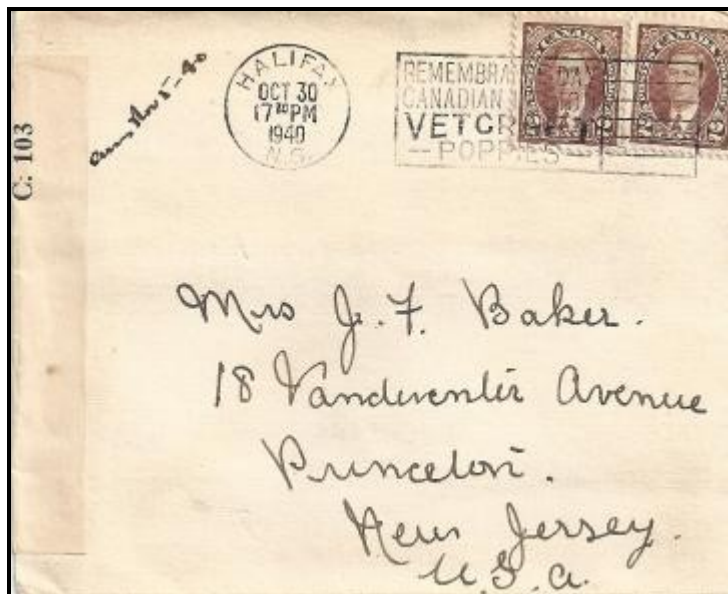 C. 103
HALIFAX
OCT 30
17 30 PM
1940
N.S.
REMEMBRA
CANADIAN
VETCR
POPPIES
CANADA
CANADA
2 2
2 2
Nov 5-40
Mrs J. F. Baker.
18 Vandeventer Avenue
Princeton.
New Jersey.
U.S.A.